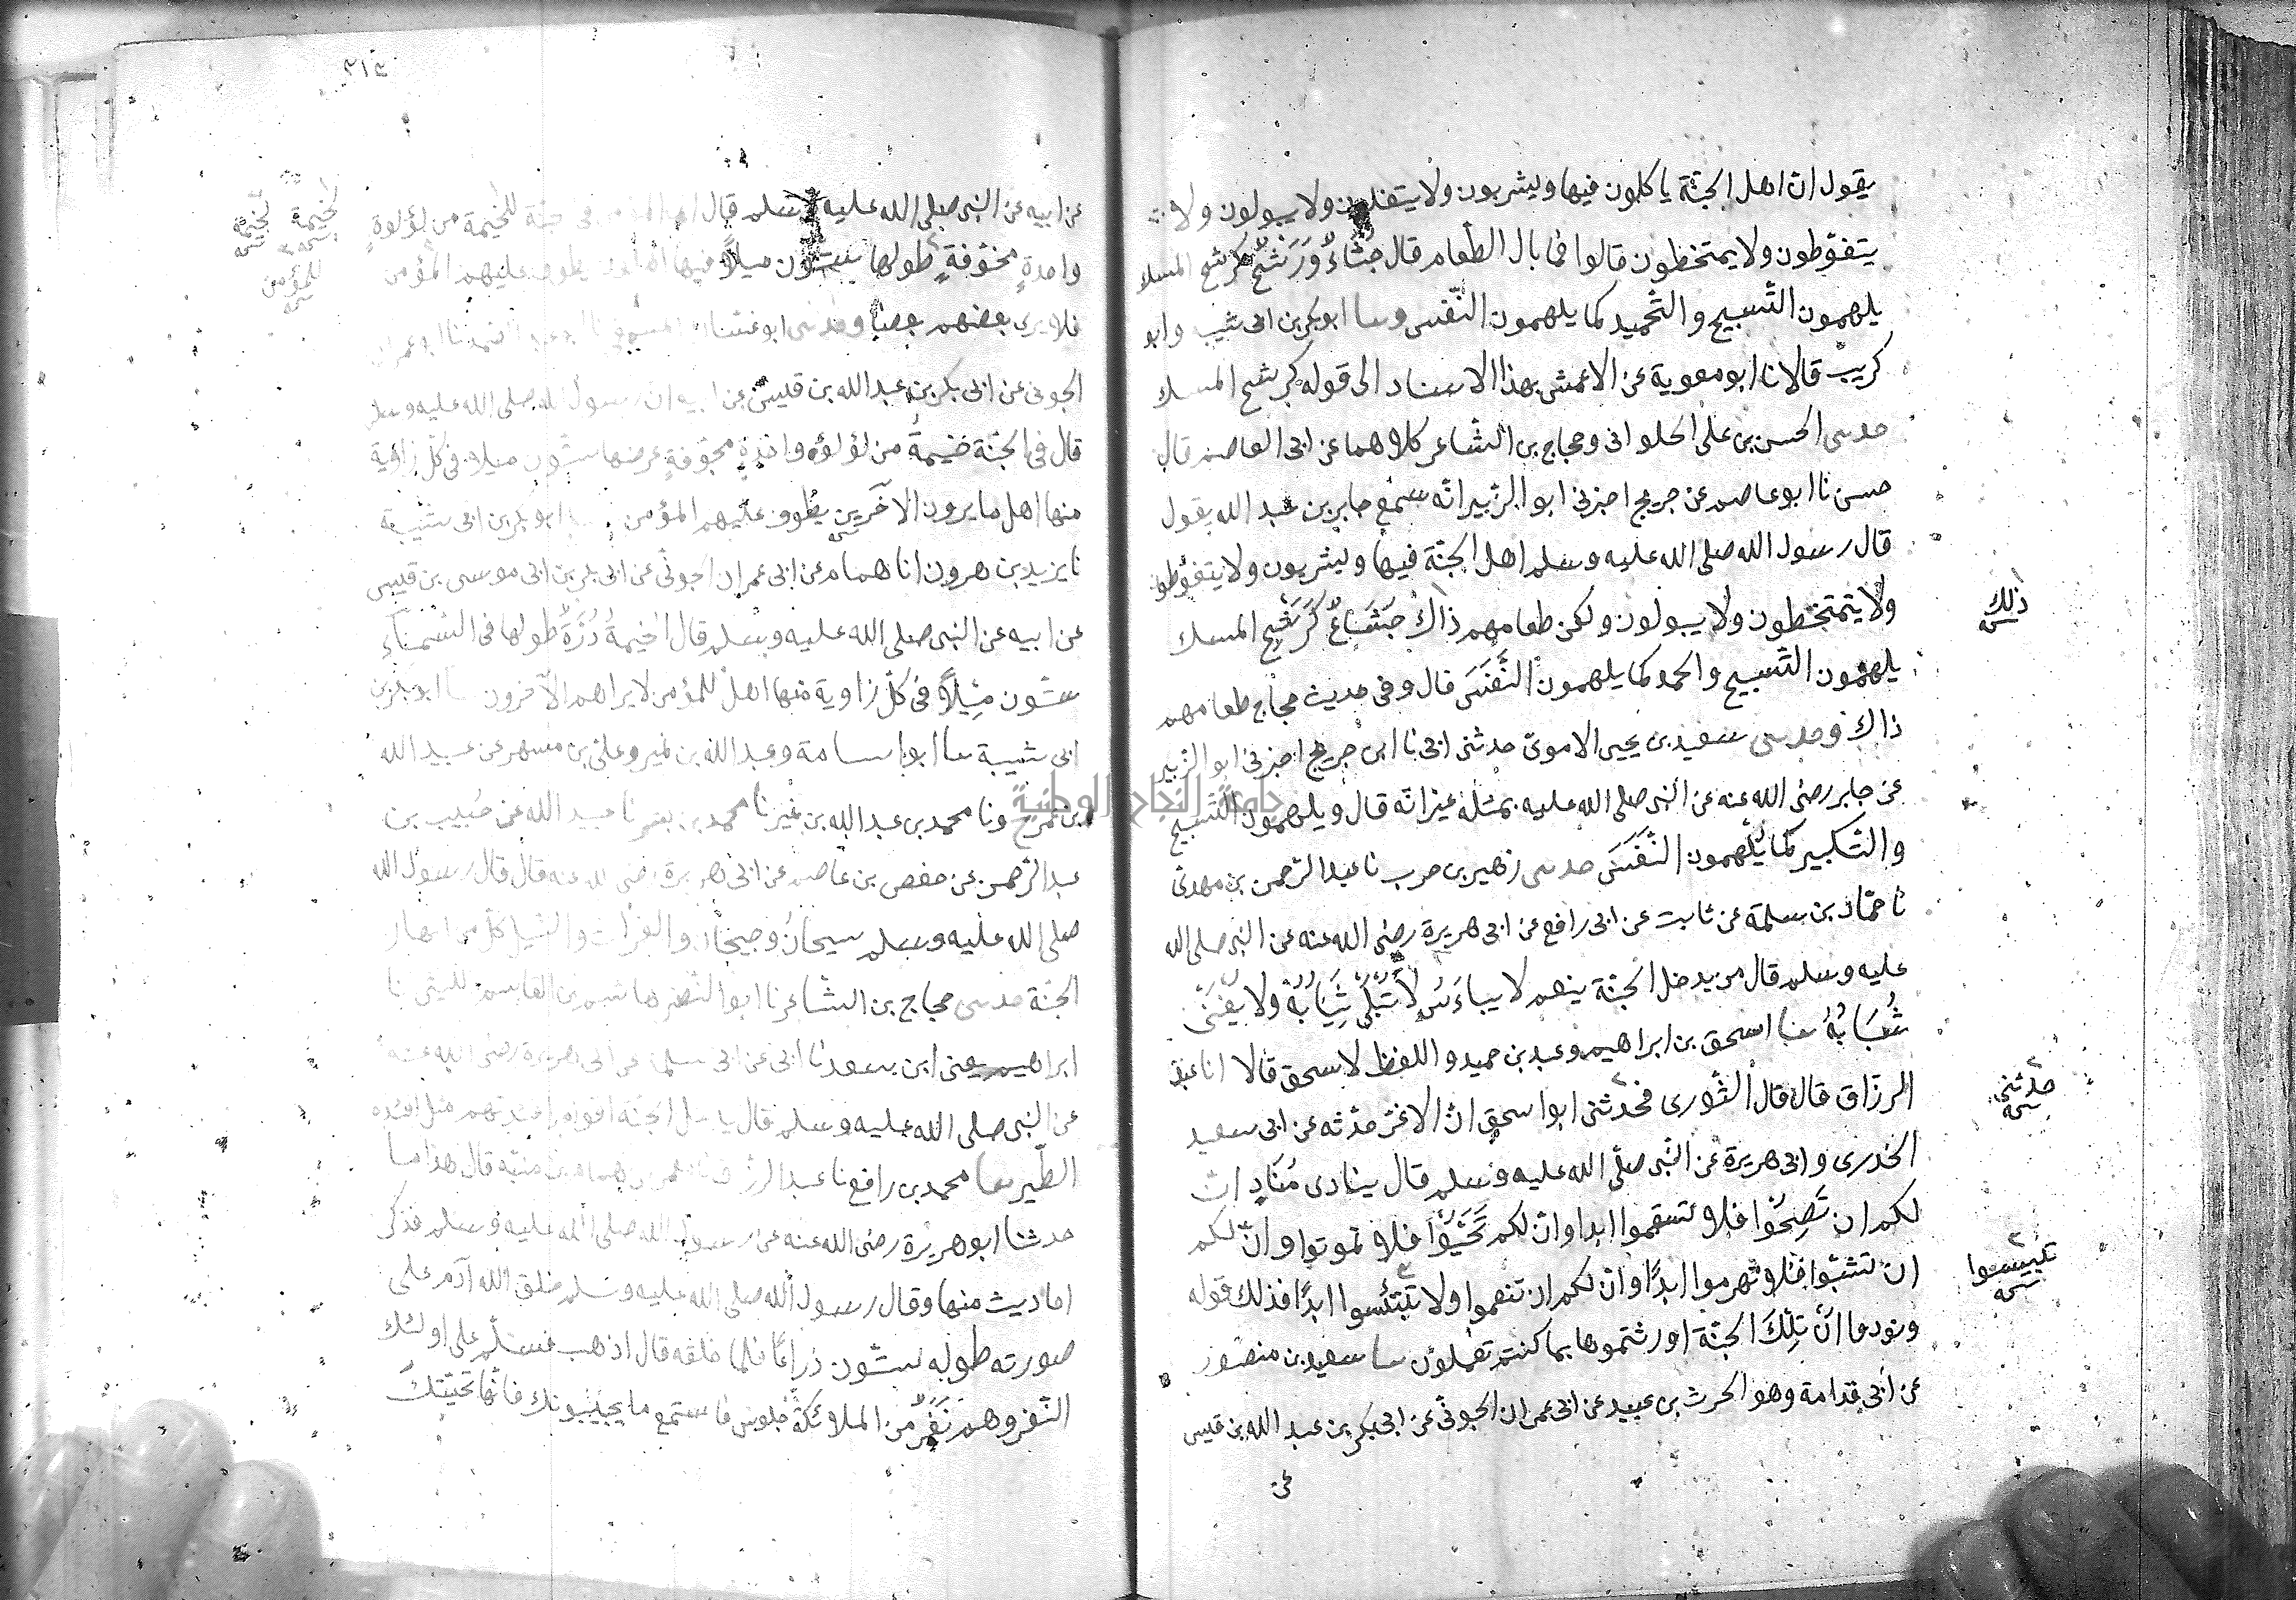 يقول ان اهل الجنة ياكلون فيها ويشربون ولا يتفلون ولا يبولون ولا
يتغوطون ولا يمتخطون قالوا فما بال الطعام قال جشاء ورشح كرشح المسك
يلهمون التسبيح والتحميد كما يلهمون النفس وسا ابو بكر بن ابى شيبه وابو
كريب قالا نا ابو معوية عن الاعمش بهذا الاسناد الى قوله كرشح المسك
حدسى الحسن بن على الحلوانى وحجاج بن الشاعر كلاهما عن ابى العاصم قال
حسن نا ابو عاصم عن جريج اخبرنى ابو الزبير انه سمع جابر بن عبد الله يقول
قال رسول الله صلى الله عليه وسلم اهل الجنة فيها ويشربون ولا يتغوطون
ولا يتمتخطون ولا يبولون ولكن طعامهم ذاك جشاء كرشح المسك
ذلك
يلهمون التسبيح والحمد كما يلهمون النفس قال وفى حديث حجاج طعامهم
ذاك وحدسى سعيد بن يحيى الاموى حدثنى ابى نا ابن جريج اخبرنى ابو الزبير
عن جابر رضى الله عنه عن النبى صلى الله عليه بمثله غير انه قال ويلهمون التسبيح
والتكبير كما يلهمون النفس حدسى زهير بن حرب نا عبد الرحمن بن مهدى
نا حماد بن سلمة عن ثابت عن ابى رافع عن ابى هريرة رضى الله عنه عن النبى صلى الله
عليه وسلم قال من يدخل الجنة ينعم لا يباءس لا تبلى ثيابه ولا يفنى
شبابه سا اسحق بن ابراهيم وعبد بن حميد واللفظ لاسحق قالا انا عبد
الرزاق قال قال الثورى فحدثنى ابو اسحق ان الاغر حدثه عن ابى سعيد
حدثنى
الخدرى وابى هريرة عن النبى صلى الله عليه وسلم قال ينادى مناد ان
لكم ان تصحوا فلا تسقموا ابدا وان لكم تحيوا فلا تموتوا وان لكم
ان تشبوا فلا تهرموا ابدا وان لكم ان تنعموا ولا تبتئسوا ابدا فذلك قوله
تبيسسوا
ونودوا ان تلك الجنة اورثتموها بما كنتم تعملون سا سعيد بن منصور
عن ابى قدامة وهو الحرث بن عبيد عن ابى عمران الجونى عن ابى بكر بن عبد الله بن قيس
عن
٣١٤
عن ابيه عن النبى صلى الله عليه وسلم قال فى جنة للخيمة من لؤلوة
لخيمة
لخيمة
واحدة مجوفة طولها ستون ميلا فيها اهلون يطوف عليهم المؤمن
للمؤمن
فلا يرى بعضهم بعضا وحدسى ابو غسان المسمعى نا ابو عبد الصمد نا ابو عمران
الجونى عن ابى بكر بن عبد الله بن قيس عن ابيه ان رسول الله صلى الله عليه وسلم
قال فى الجنة خيمة من لؤلؤه واحدة مجوفة عرضها ستون ميلا فى كل زاوية
منها اهل ما يرون الآخرين يطوف عليهم المؤمن سا ابو بكر بن ابى شيبة
نا يزيد بن هرون انا همام عن ابى عمران الجونى عن ابى بكر بن ابى موسى بن قيس
عن ابيه عن النبى صلى الله عليه وسلم قال الخيمة درة طولها فى السماء
ستون ميلا فى كل زاوية منها اهل للمؤمن لا يراهم الآخرون سا ابو بكر بن
ابى شيبة سا ابو اسامة وعبد الله بن نمير وعلى بن مسهر عن عبيد الله
ونا محمد بن عبد الله بن نمير نا محمد بن بشر نا عبيد الله عن خبيب بن
عبد الرحمن عن حفص بن عاصم عن ابى هريرة رضى الله عنه قال قال رسول الله
صلى الله عليه وسلم سيحان وجيحان والفرات والنيل كل من انهار
الجنة حدسى حجاج بن الشاعر نا ابو النضر هاشم بن القاسم الليثى نا
ابراهيم يعنى ابن سعد نا ابى عن ابى سلمة عن ابى هريرة رضى الله عنه
عن النبى صلى الله عليه وسلم قال يدخل الجنة اقوام افئدتهم مثل افئدة
الطير سا محمد بن رافع نا عبد الرزاق نا معمر عن همام بن منبه قال هذا ما
حدثنا ابو هريرة رضى الله عنه عن رسول الله صلى الله عليه وسلم فذكر
احاديث منها وقال رسول الله صلى الله عليه وسلم خلق الله آدم على
صورته طوله ستون ذراعا فلما خلقه قال اذهب فسلم على اولئك
النفر وهم نفر من الملائكة جلوس فاستمع ما يجيبونك فانها تحيتك
جامعة النجاح الوطنية